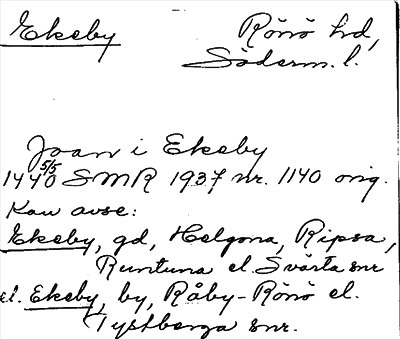 Ekeby
Rönö hd,
Söderm. l.
Joan i Ekeby
1440 5/5 SMR 1937, nr. 1140 orig.
Kan avse:
Ekeby, gd, Helgona, Ripsa,
Runtuna el. Svärta snr
el. Ekeby, by, Råby-Rönö el.
Tystberga snr.